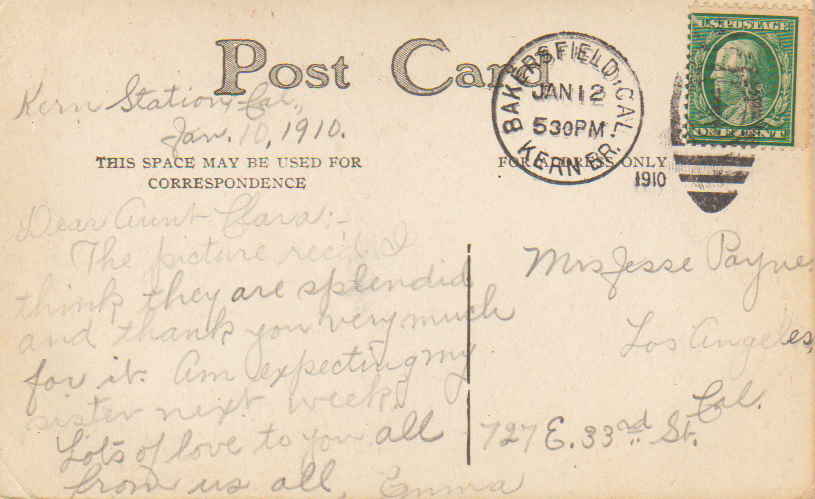 Post Card
Kern Station, Cal.,
Jan. 10, 1910.
THIS SPACE MAY BE USED FOR
CORRESPONDENCE
Dear Aunt Clara:-
The picture rec'd. I
think they are splendid
and thank you very much
for it. Am expecting my
sister next week.
Lots of love to you all
from us all, Emma
BAKERSFIELD, CAL.
JAN 12
530PM
KERN BR.
1910
U.S. POSTAGE
ONE CENT
FOR ADDRESS ONLY
Mrs Jesse Payne
Los Angeles,
Cal.
727 E. 33rd St.